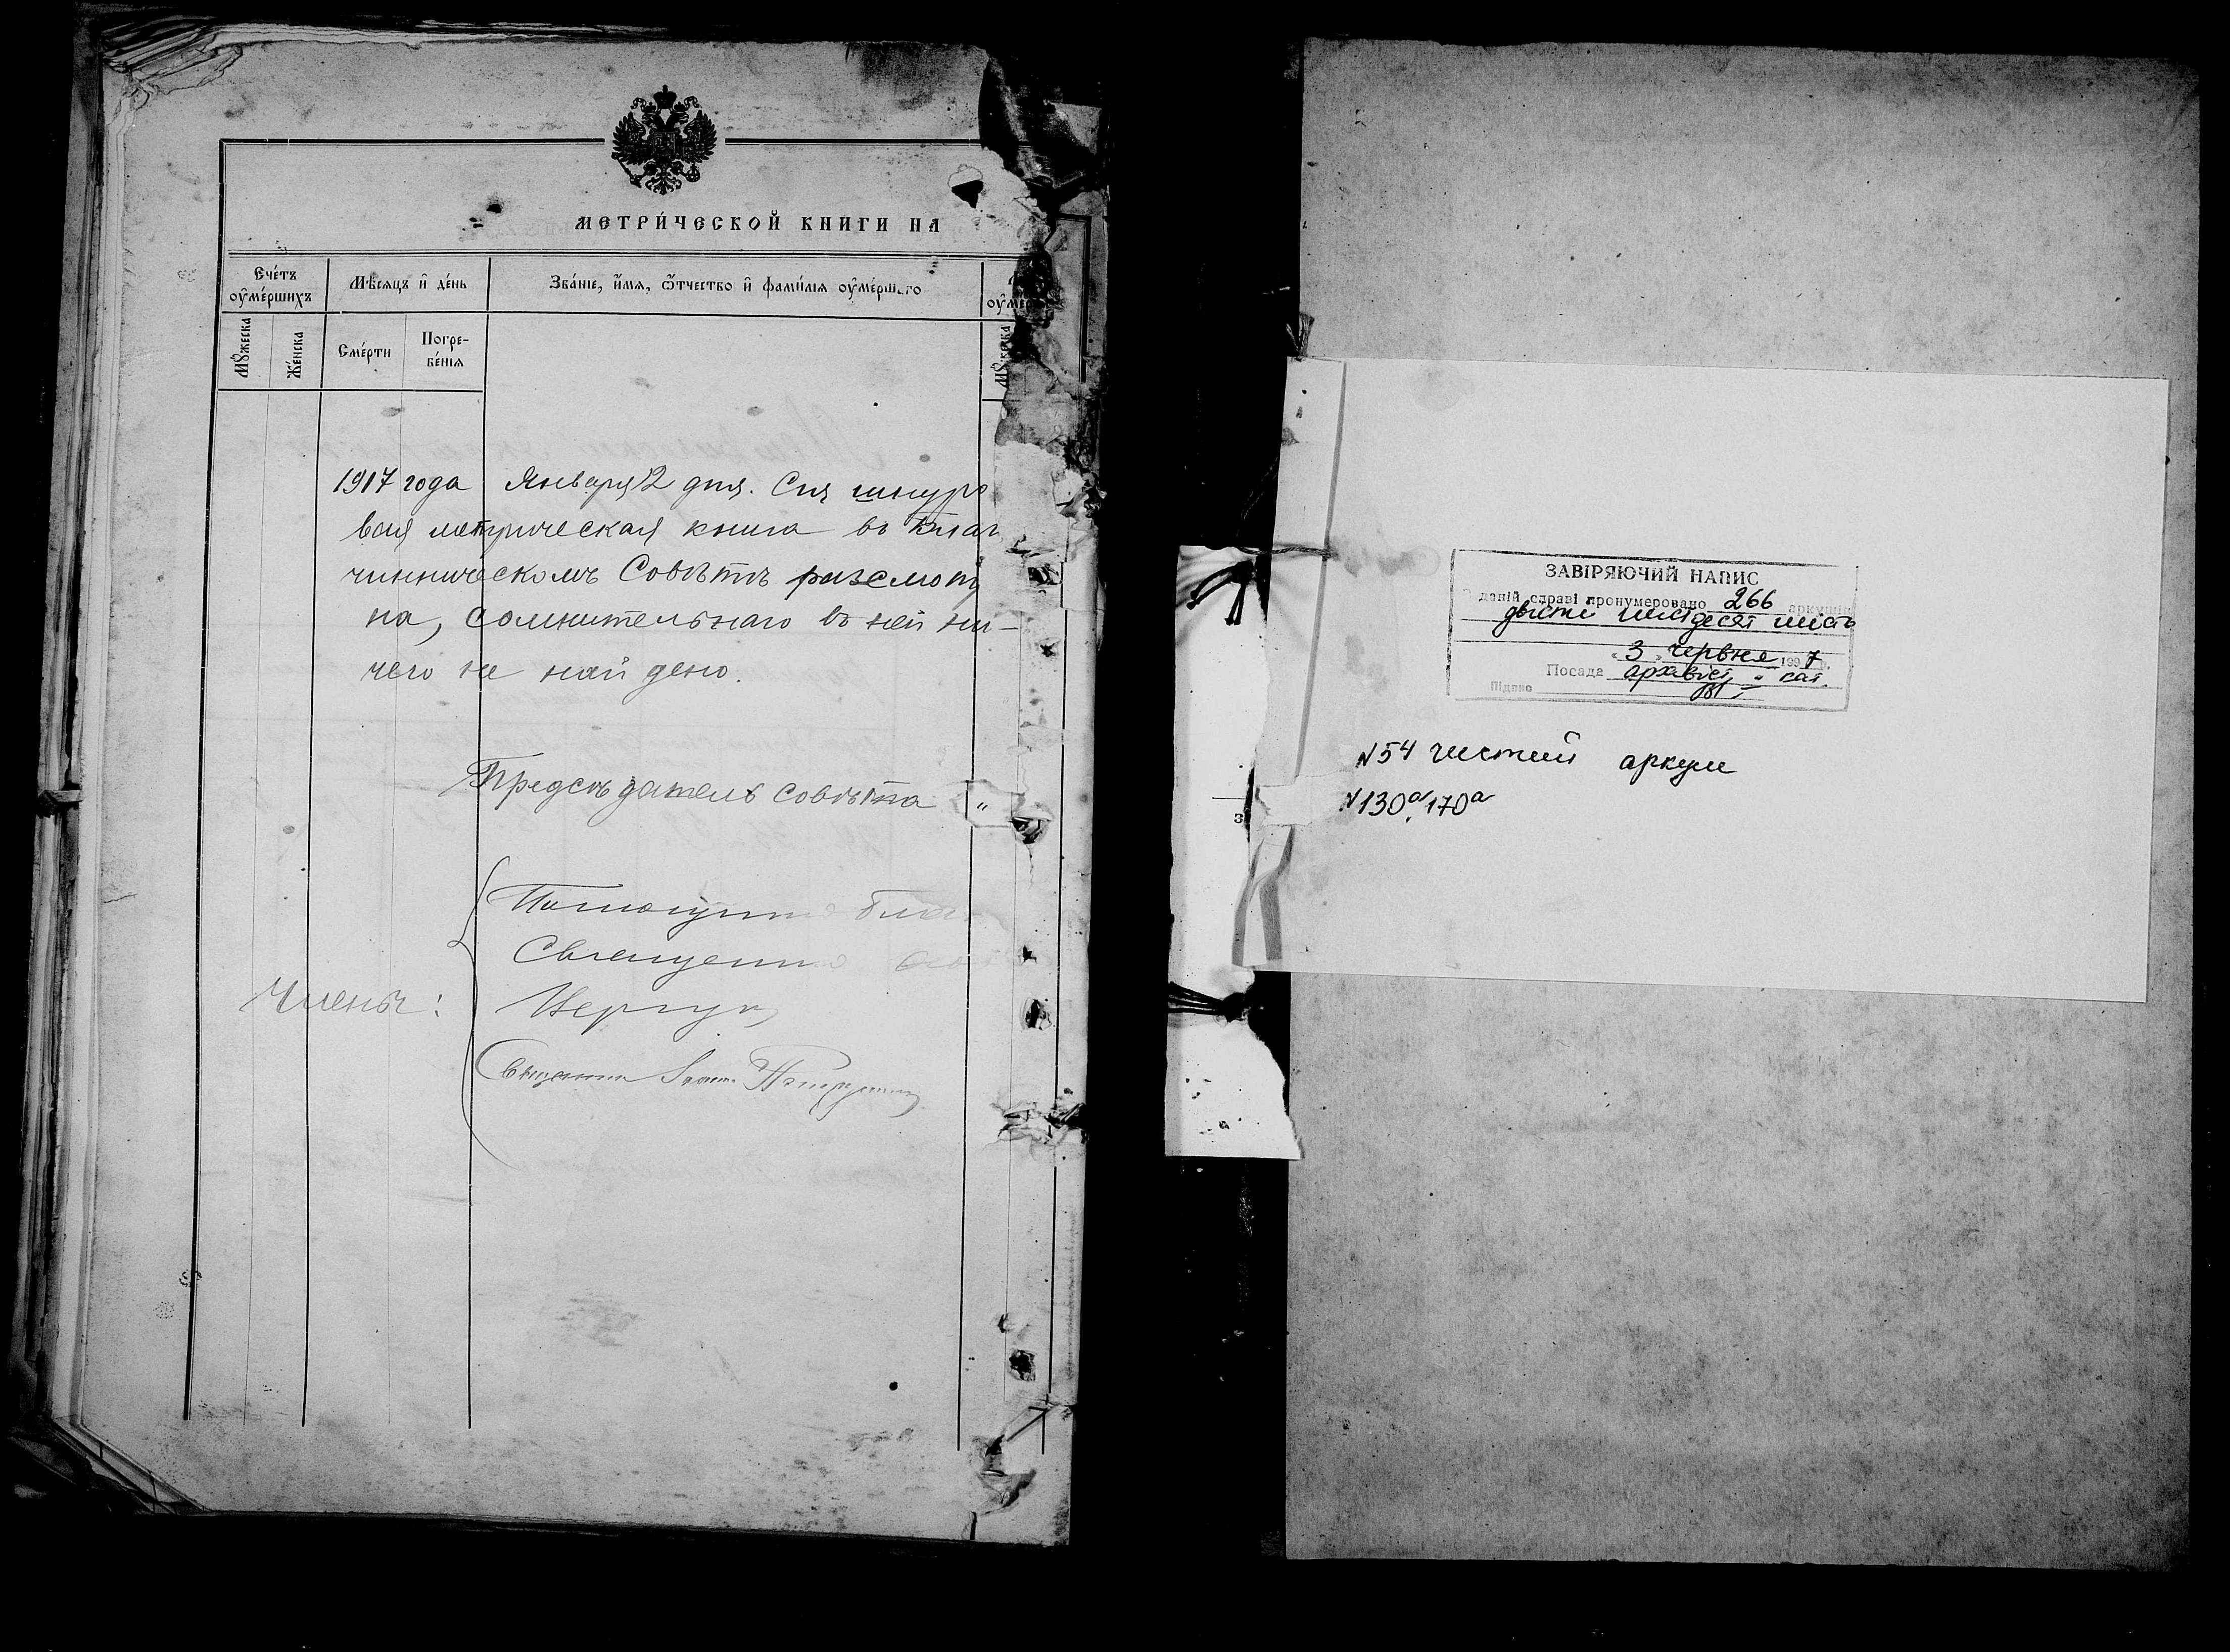 МЕТРИ́ЧЕСКОЙ КНИГИ НА
Счéтъ оу҆мéршихъ
Мѣсяцъ и҆ дéнь
Звáнїе, и҆́мя, ѿтчество и҆ фами́лїя оу҆мéршаго
Мꙋжеска
Жéнска
Смéрти
Погре-
бéнїя
1917 года Января 2 дня. Сия шнуро
вая метрическая книга въ Благ
чинническомъ Совѣтѣ разсмотр
на, сомнительнаго въ ней ни-
чего не найдено.
Предсѣдатель совѣта
Помощни Благ
Священни
Члены:
Священни
ЗАВІРЯЮЧИЙ НАПИС
В даній справі пронумеровано 266 аркушів
двісті шістдесят шість
"3" червня 1997 р.
Посада архівіст кат.
Підпис
N54 чистий аркуш
N130а, 170а